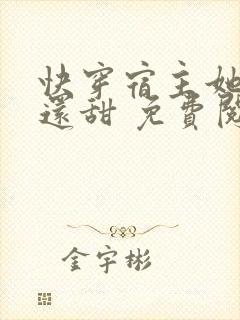 快穿宿主她
還甜 免費閱
金宇彬